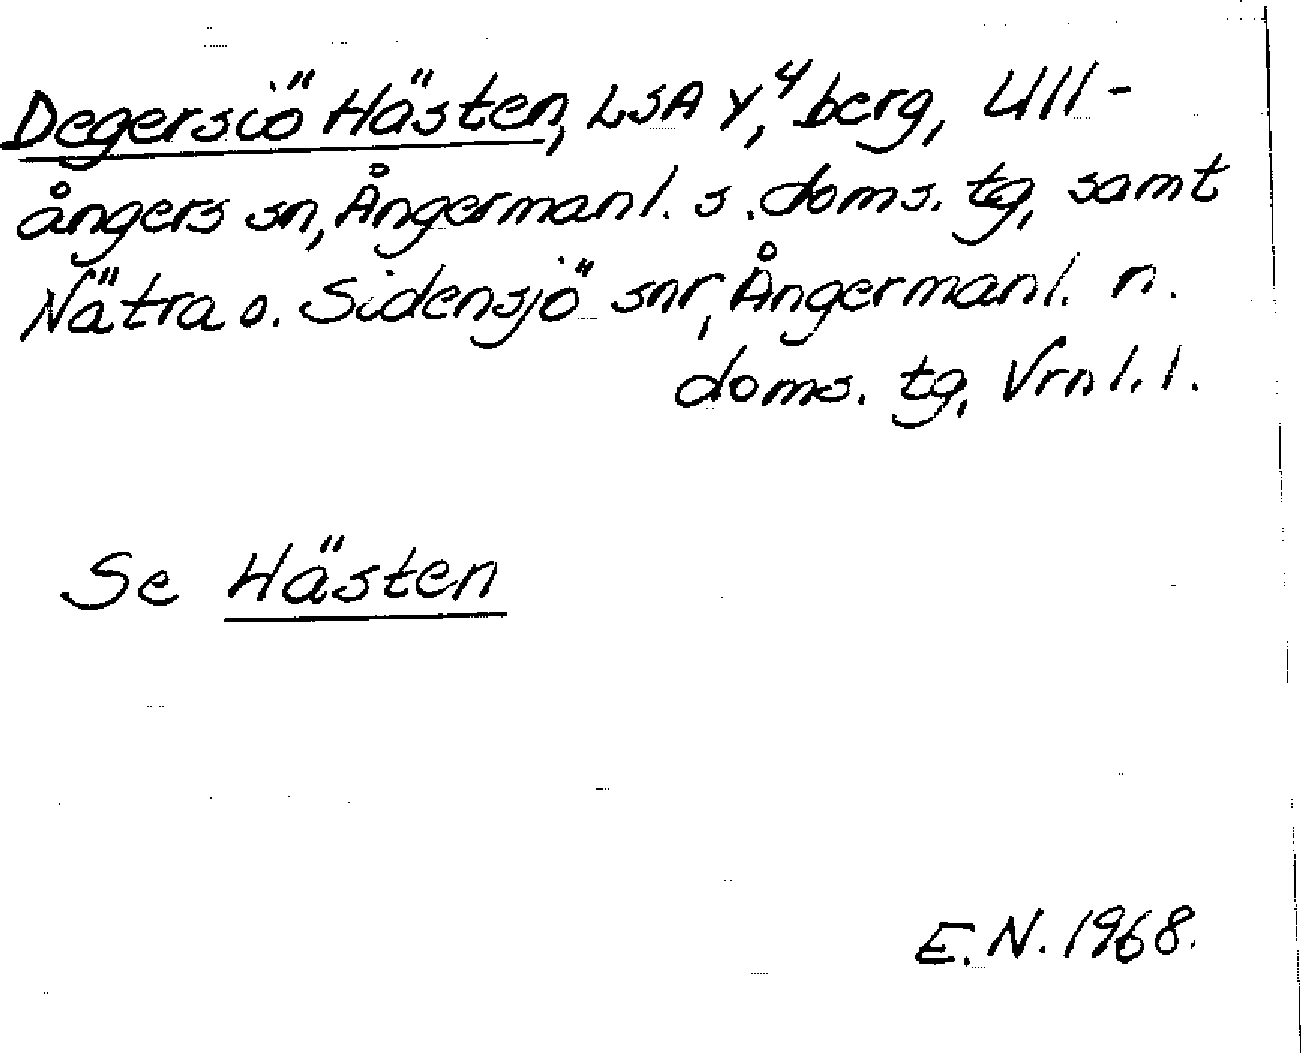 Degersiö Hästen, LSA Y,⁴ berg, Ull-
ångers sn, Ångermanl. s. doms. tg, samt
Nätra o. Sidensjö snr, Ångermanl. n.
doms. tg, Vrnl. l.
Se Hästen
E.N. 1968.